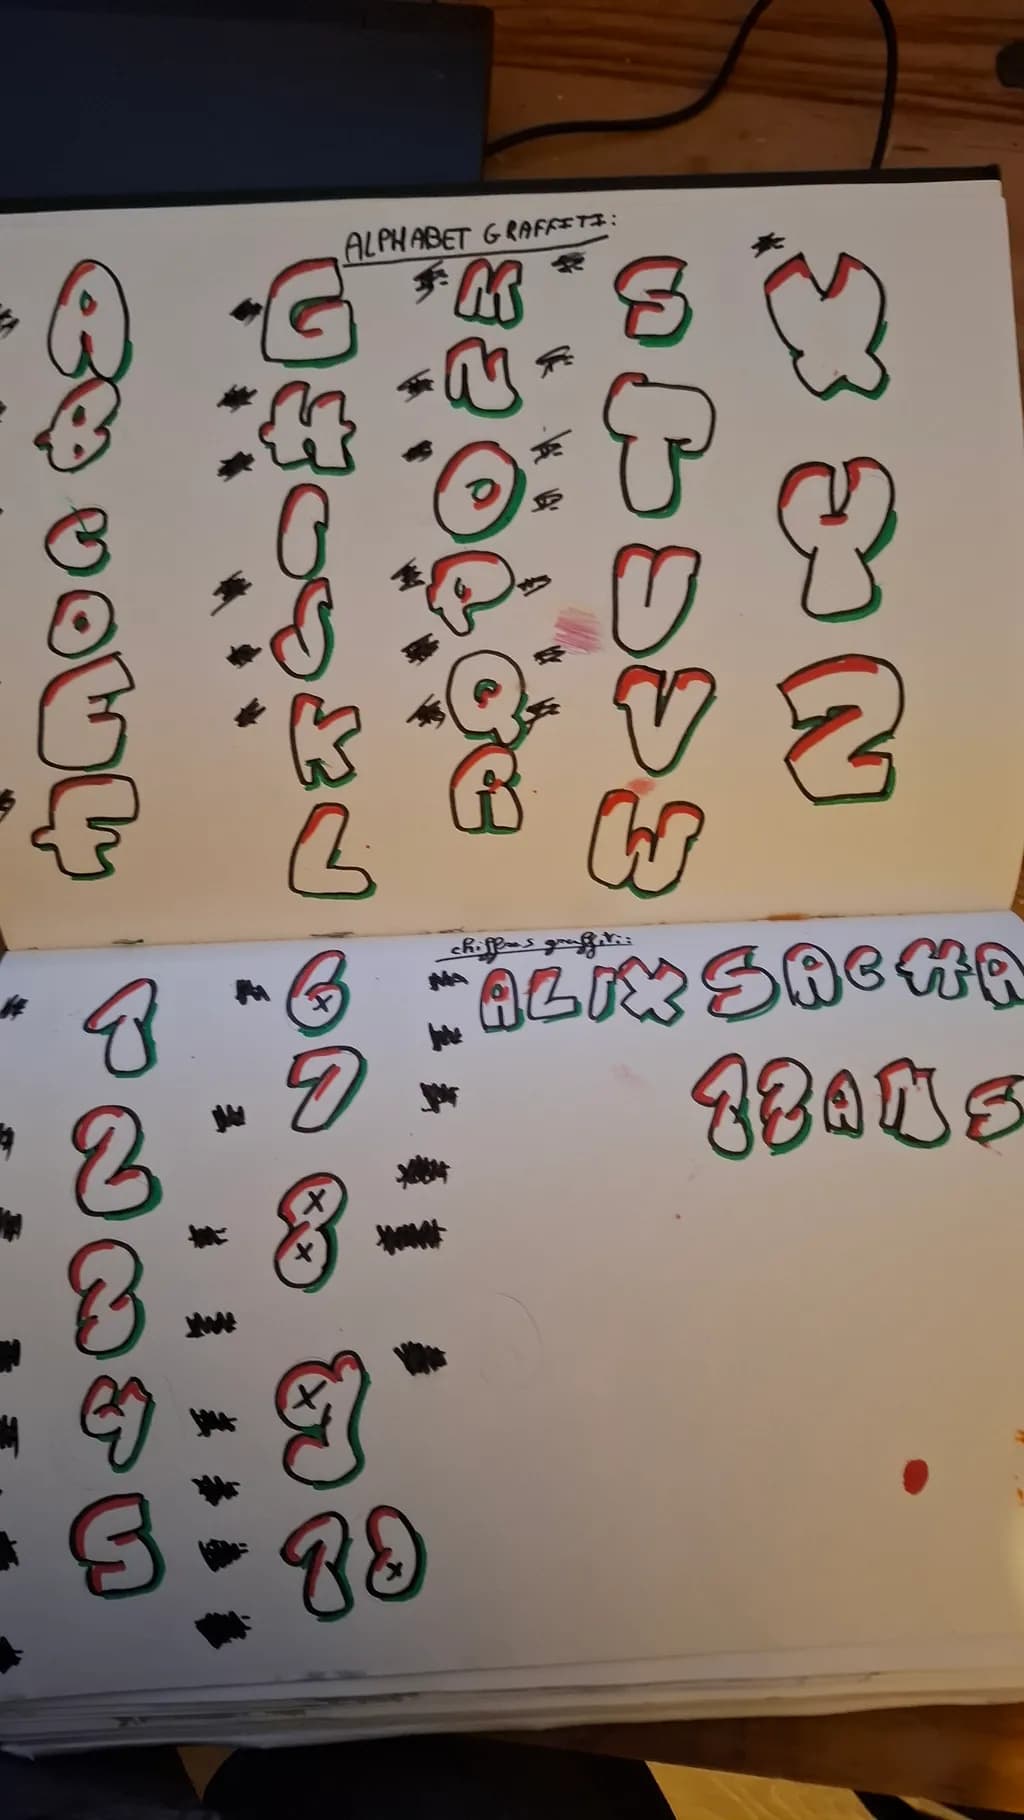 ALPHABET GRAFFITI:
A G M S X
B H N T Y
C I O U Z
D J P V
E K Q W
F L R
chiffres graffiti:
1 6 ALIX SACHA
2 7 12 ANS
3 8
4 9
5 10